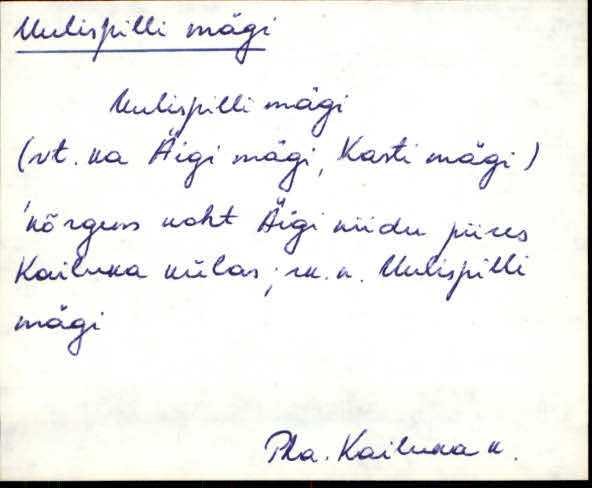 Uulispilli mägi
Uulispilli mägi
(vt. ka Äigi mägi, Kasti mägi)
'kõrgem koht Äigi niidu piires
Kailuka külas; rk. n. Uulispilli
mägi
Pha. Kailuka k.